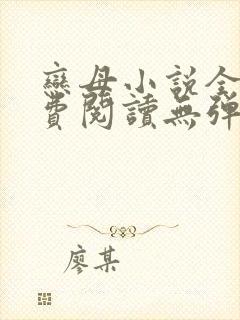 戀母小説全
費閱讀無彈
廖某